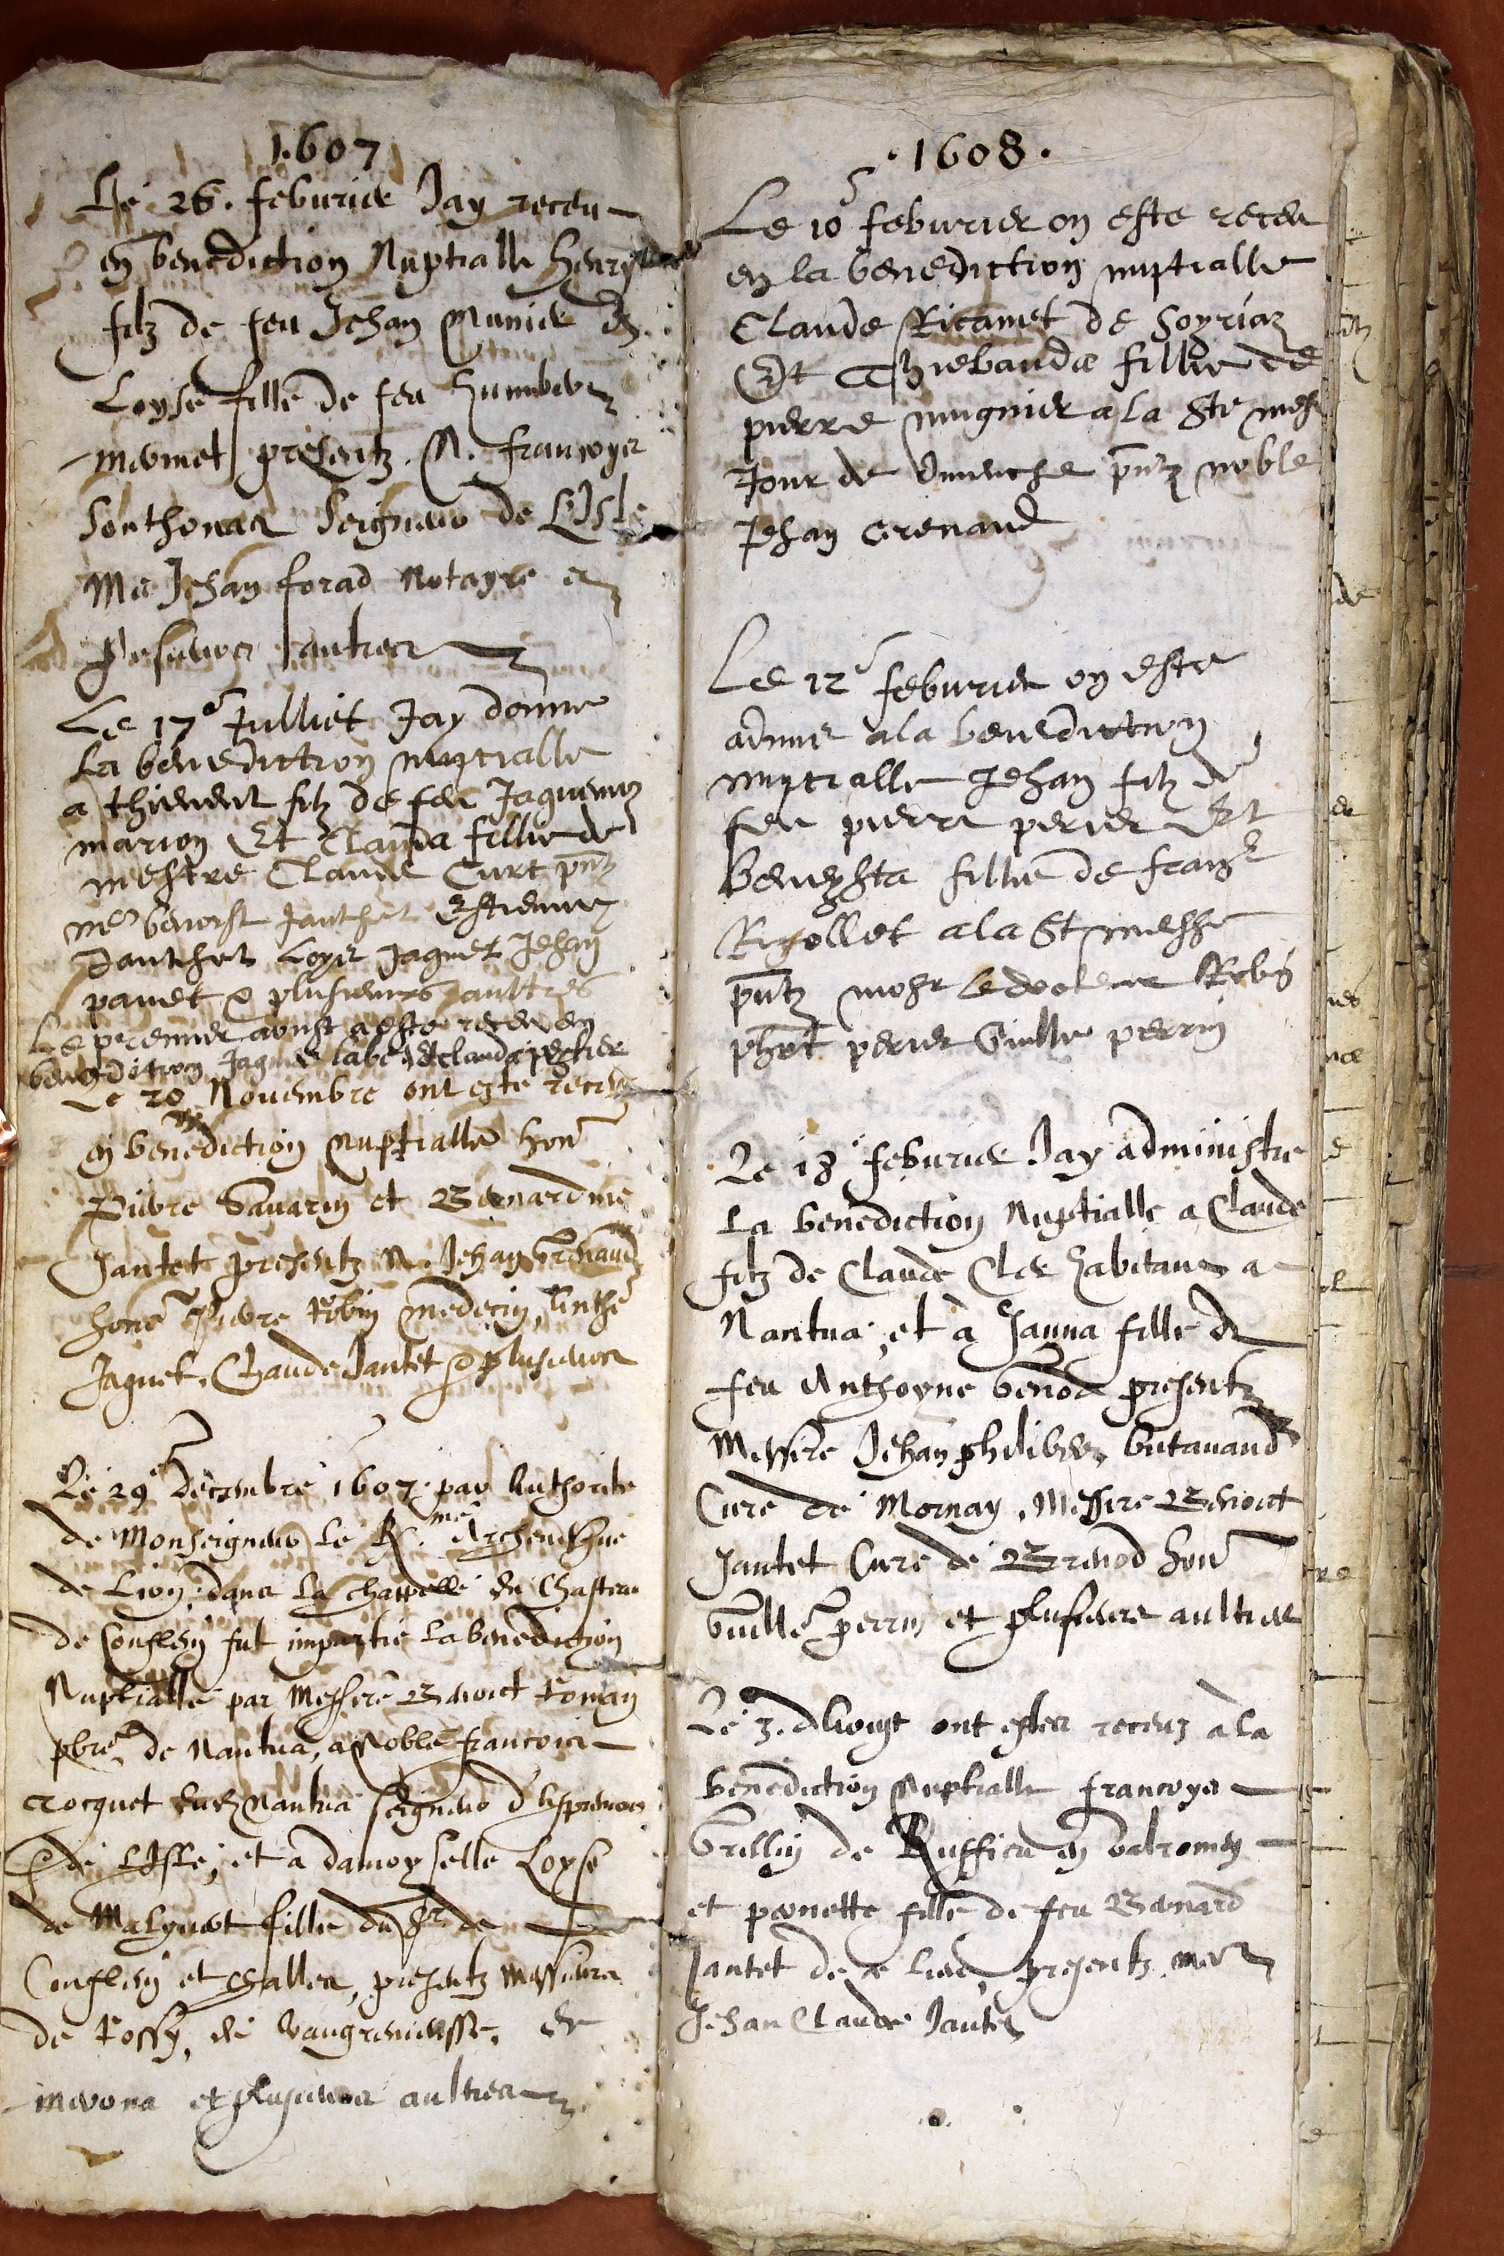 1607
Le 26. feburier Jay receu
en benediction Nuptialle Henry
filz de feu Jehan Munier Et
Loyse fille de feu humbert
mermet presentz. N. francoys
Sonthonax Seigneur de L'Isle
Me Jehan forad Notayre et
plusieurs aultres
Le 17e Julliet Jay donne
La benediction nuptialle
a thievent filz de feu Jaquemoz
marion Et Clauda fillie de
mestre Claude Curt pntz
mre benoist Janthet Estienne
Janthet Loys Jaquet Jehan
panet & plusieurs aultres
Le premier aoust a este receu en
benediction Jaques labe et clauda perrier
Le 20 Novembre ont este receuz
en benediction nuptialle hon
Pierre Savarin et Bernardine
Jantet presentz N. Jehan Grenaud
hone Pierre Robin medecin, Anthe
Jaquet, Claude Jantet & plusieurs
Le 29e decembre 1607. par Authorite
de Monseigneur Le R.me Archevesque
de Lion, dans La chappelle du Chasteau
de Conflens fut impartie La benediction
Nuptialle par Messire Benoict Roman
pbre de Nantua, a Noble francois
crocquet dud Nantua seigneur d'
& de L'Isle, et a damoyselle Loyse
de Malyvert fille du Sr. de
Conflens et challes, presentz Messieurs
de Rossy, de Vaugrineusse, de
mevona et plusieurs aultres
.1608.
Le 10e feburier on este receu
en la benediction nuptialle
Claude Ricamet de Soyriaz
Et Thiebauda fillie de
pierre mugnier a la Ste mess
Jour de dimenche pntz noble
Jehan Grenaud
Le 12e feburier on este
admis a la benediction
nuptialle Jehan filz de
feu pierre perier Et
beneysta fillie de franz
Rigollet a la St messe
pntz mosr Le docteur Robin
phbt perier Guille perrin
Le 18e feburier Jay administre
La benediction Nuptialle a Claude
filz de Claude Cler habitant a
Nantua, et a Janna fille de
feu Anthoyne benod presentz
Messire Jehan philibert butavand
Cure de Mornay, Messire Benoict
Jantet Cure de Brenod hon
Guille perrin et plusieurs aultres
Le 3. d'Aoust ont estes receuz a la
benediction Nuptialle francoys
Grillin de Ruffieu en valromey
et pernette fille de feu Bernard
Jantet de ce Lieu, presentz mes
Jehan Claude Jantet